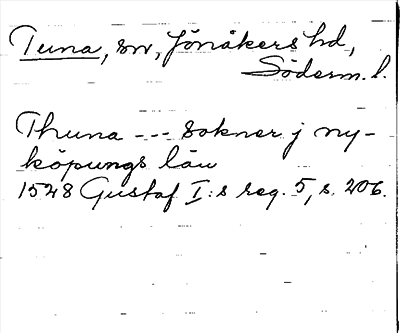 Tuna, sn, Jönåkers hd,
Söderm. l.
Thuna --- sokner j ny-
köpungs län
1528 Gustaf I:s reg. 5, s. 206.